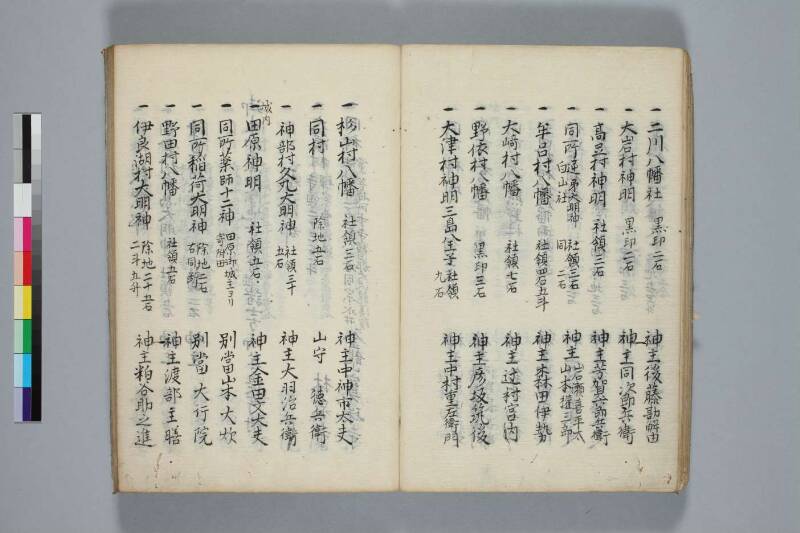 一 二川八幡社 黒印二石 神主後藤勘解由
一 大岩村神明 黒印二石 神主同次郎兵衛
一 高足村神明 社領三石 神主芳賀六郎兵衛
一 同所 大明神 社領三石 白山社 同二石 神主 岩瀬喜平太 山本権三郎
一 牟呂村八幡 社領四石五斗 神主森田伊勢
一 大崎村八幡 社領七石 神主辻村宮内
一 野依村八幡 黒印三石 神主彦坂筑後
一 大津村神明三島八王子 社領九石 神主中村重左衛門
一 杉山村八幡 社領三石 神主中神市太夫
一 同村 除地五石 山守 徳兵衛
一 神部村久丸大明神 社領三十五石 神主大羽治兵衛
城内
一 田原神明 社領五石 神主金田文大夫
一 同所薬師十二神 田原御城主ヨリ寄附田 別當山本大炊
一 同所稲荷大明神 除地二石 右同断 別當 大行院
一 野田村八幡 社領五石 神主渡部主膳
一 伊良湖村大明神 除地二十五石二斗五升 神主粕谷助之進